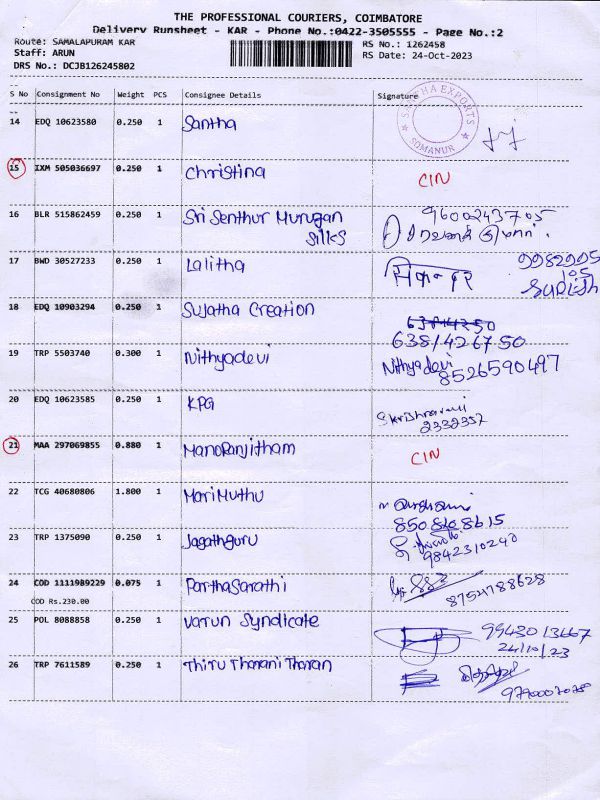 THE PROFESSIONAL COURIERS, COIMBATORE
Delivery Runsheet - KAR - Phone No.:0422-3505555 - Page No.:2
Route: SAMALAPURAM KAR RS No.: 1262458
Staff: ARUN RS Date: 24-Oct-2023
DRS No.: DCJB126245802
S No Consignment No Weight PCS Consignee Details Signature
14 EDQ 10623580 0.250 1 Santha
EXPORTS
SOMANUR
15 IXM 505036697 0.250 1 Christina CIN
16 BLR 515862459 0.250 1 Sri Senthur Murugan 9600243705
Silks
17 BWD 30527233 0.250 1 Lalitha
18 EDQ 10903294 0.250 1 Sujatha Creation
6381426750
19 TRP 5503740 0.300 1 Nithyadevi Nithyadevi
8526590497
20 EDQ 10623585 0.250 1 KPG
2332357
21 MAA 297069855 0.880 1 Manoranjitham CIN
22 TCG 40680806 1.800 1 Mari Muthu
23 TRP 1375090 0.250 1 Jagathguru
9842310240
24 COD 1111989229 0.075 1 Parthasarathi 8754788628
COD Rs.230.00
25 POL 8088858 0.250 1 Varun Syndicate 9943013667
24/10/23
26 TRP 7611589 0.250 1 Thiru Tharani Tharan